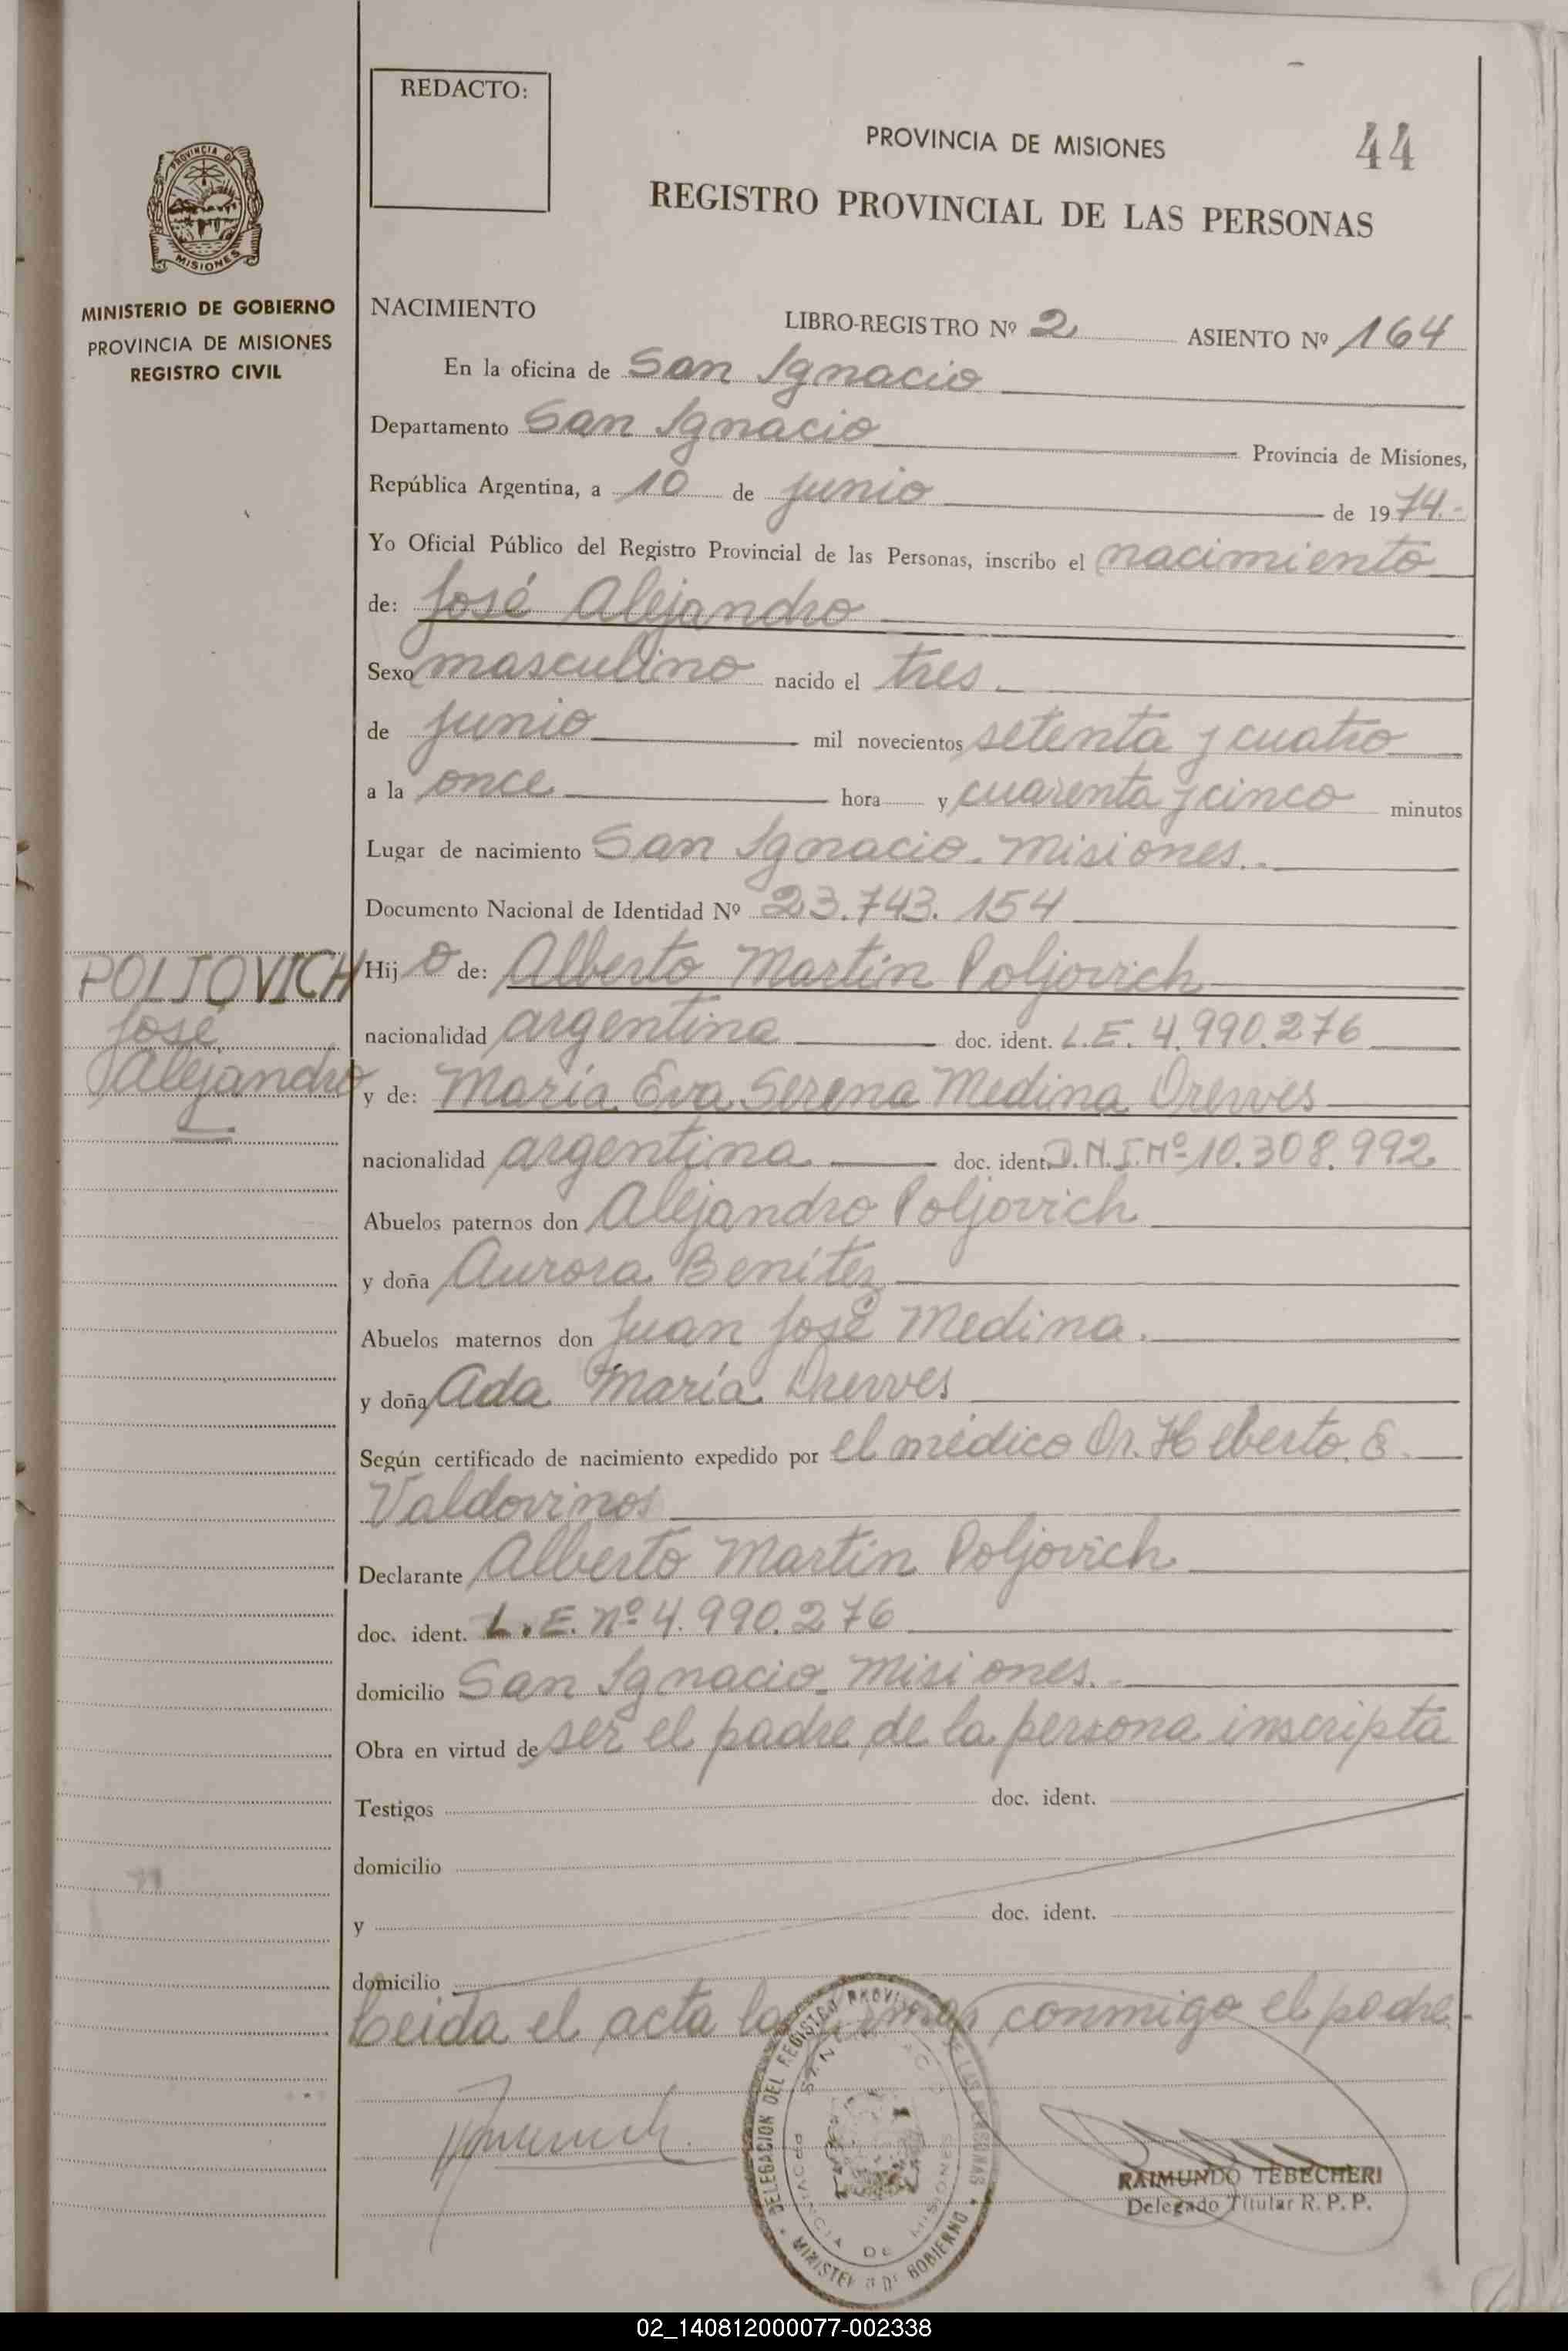 REDACTO:
PROVINCIA DE MISIONES
44
REGISTRO PROVINCIAL DE LAS PERSONAS
PROVINCIA DE
MISIONES
MINISTERIO DE GOBIERNO
PROVINCIA DE MISIONES
REGISTRO CIVIL
NACIMIENTO
LIBRO-REGISTRO Nº 2 ASIENTO Nº 164
En la oficina de San Ignacio
Departamento San Ignacio Provincia de Misiones,
República Argentina, a 10 de junio de 1974.-
Yo Oficial Público del Registro Provincial de las Personas, inscribo el nacimiento
de: José Alejandro
Sexo masculino nacido el tres
de junio mil novecientos setenta y cuatro
a la once hora y cuarenta y cinco minutos
Lugar de nacimiento San Ignacio. Misiones.
Documento Nacional de Identidad Nº 23.743.154
POLJOVICH
José
Alejandro
Hijo de: Alberto Martín Poljovich
nacionalidad argentina doc. ident. L.E. 4.990.276
y de: María Eva Serena Medina Drewes
nacionalidad argentina doc. ident. D.N.I.Nº 10.308.992
Abuelos paternos don Alejandro Poljovich
y doña Aurora Benítez
Abuelos maternos don Juan José Medina.
y doña Ada María Drewes
Según certificado de nacimiento expedido por el médico Dr. Heberto. E.
Valdovinos
Declarante Alberto Martín Poljovich
doc. ident. L.E. nº 4.990.276
domicilio San Ignacio. Misiones.
Obra en virtud de ser el padre de la persona inscripta
Testigos doc. ident.
domicilio
y doc. ident.
domicilio
Leida el acta la firma conmigo el padre.-
DELEGACION DEL REGISTRO PROVINCIAL DE LAS PERSONAS
SAN IGNACIO
PROVINCIA DE MISIONES
MINISTERIO DE GOBIERNO
RAIMUNDO TEBECHERI
Delegado Titular R. P. P.
02_140812000077-002338